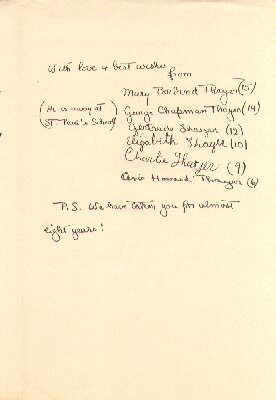 With love & best wishes
from
Mary Thayer (15)
(He is away at
St. Paul's School)
George Chapman Thayer (14)
Gertrude Thayer (12)
Elizabeth Thayer (10)
Charlie Thayer (9)
Howard Thayer (6)
P.S. We have taken you for almost
eight years!